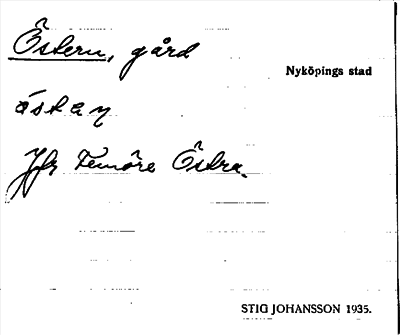 Östern, gård
Nyköpings stad
östaη
Jfr Femöre Östra.
STIG JOHANSSON 1935.